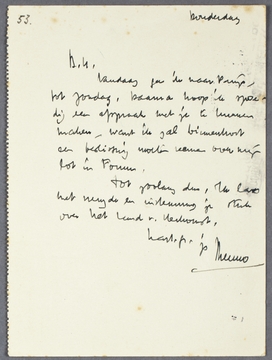 53.
donderdag
B. H.
Vandaag ga ik naar Parijs,
tot zondag, daarna hoop ik spoe-
dig een afspraak met je te kunnen
maken, want ik zal binnenkort
een beslissing moeten nemen over mijn
lot in
Tot zolang dan, ik las
met vreugde en instemming je stuk
over het land v. herkomst.
je Menno